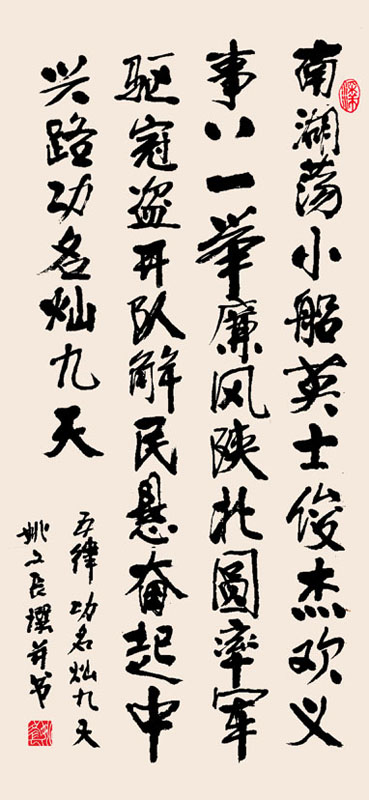 南湖荡小船英士俊杰欢义
事八一举廉风陕北圆率军
驱寇盗再队解民悬奋起中
兴路功名灿九天
五律 功名灿九天
姚文长撰并书